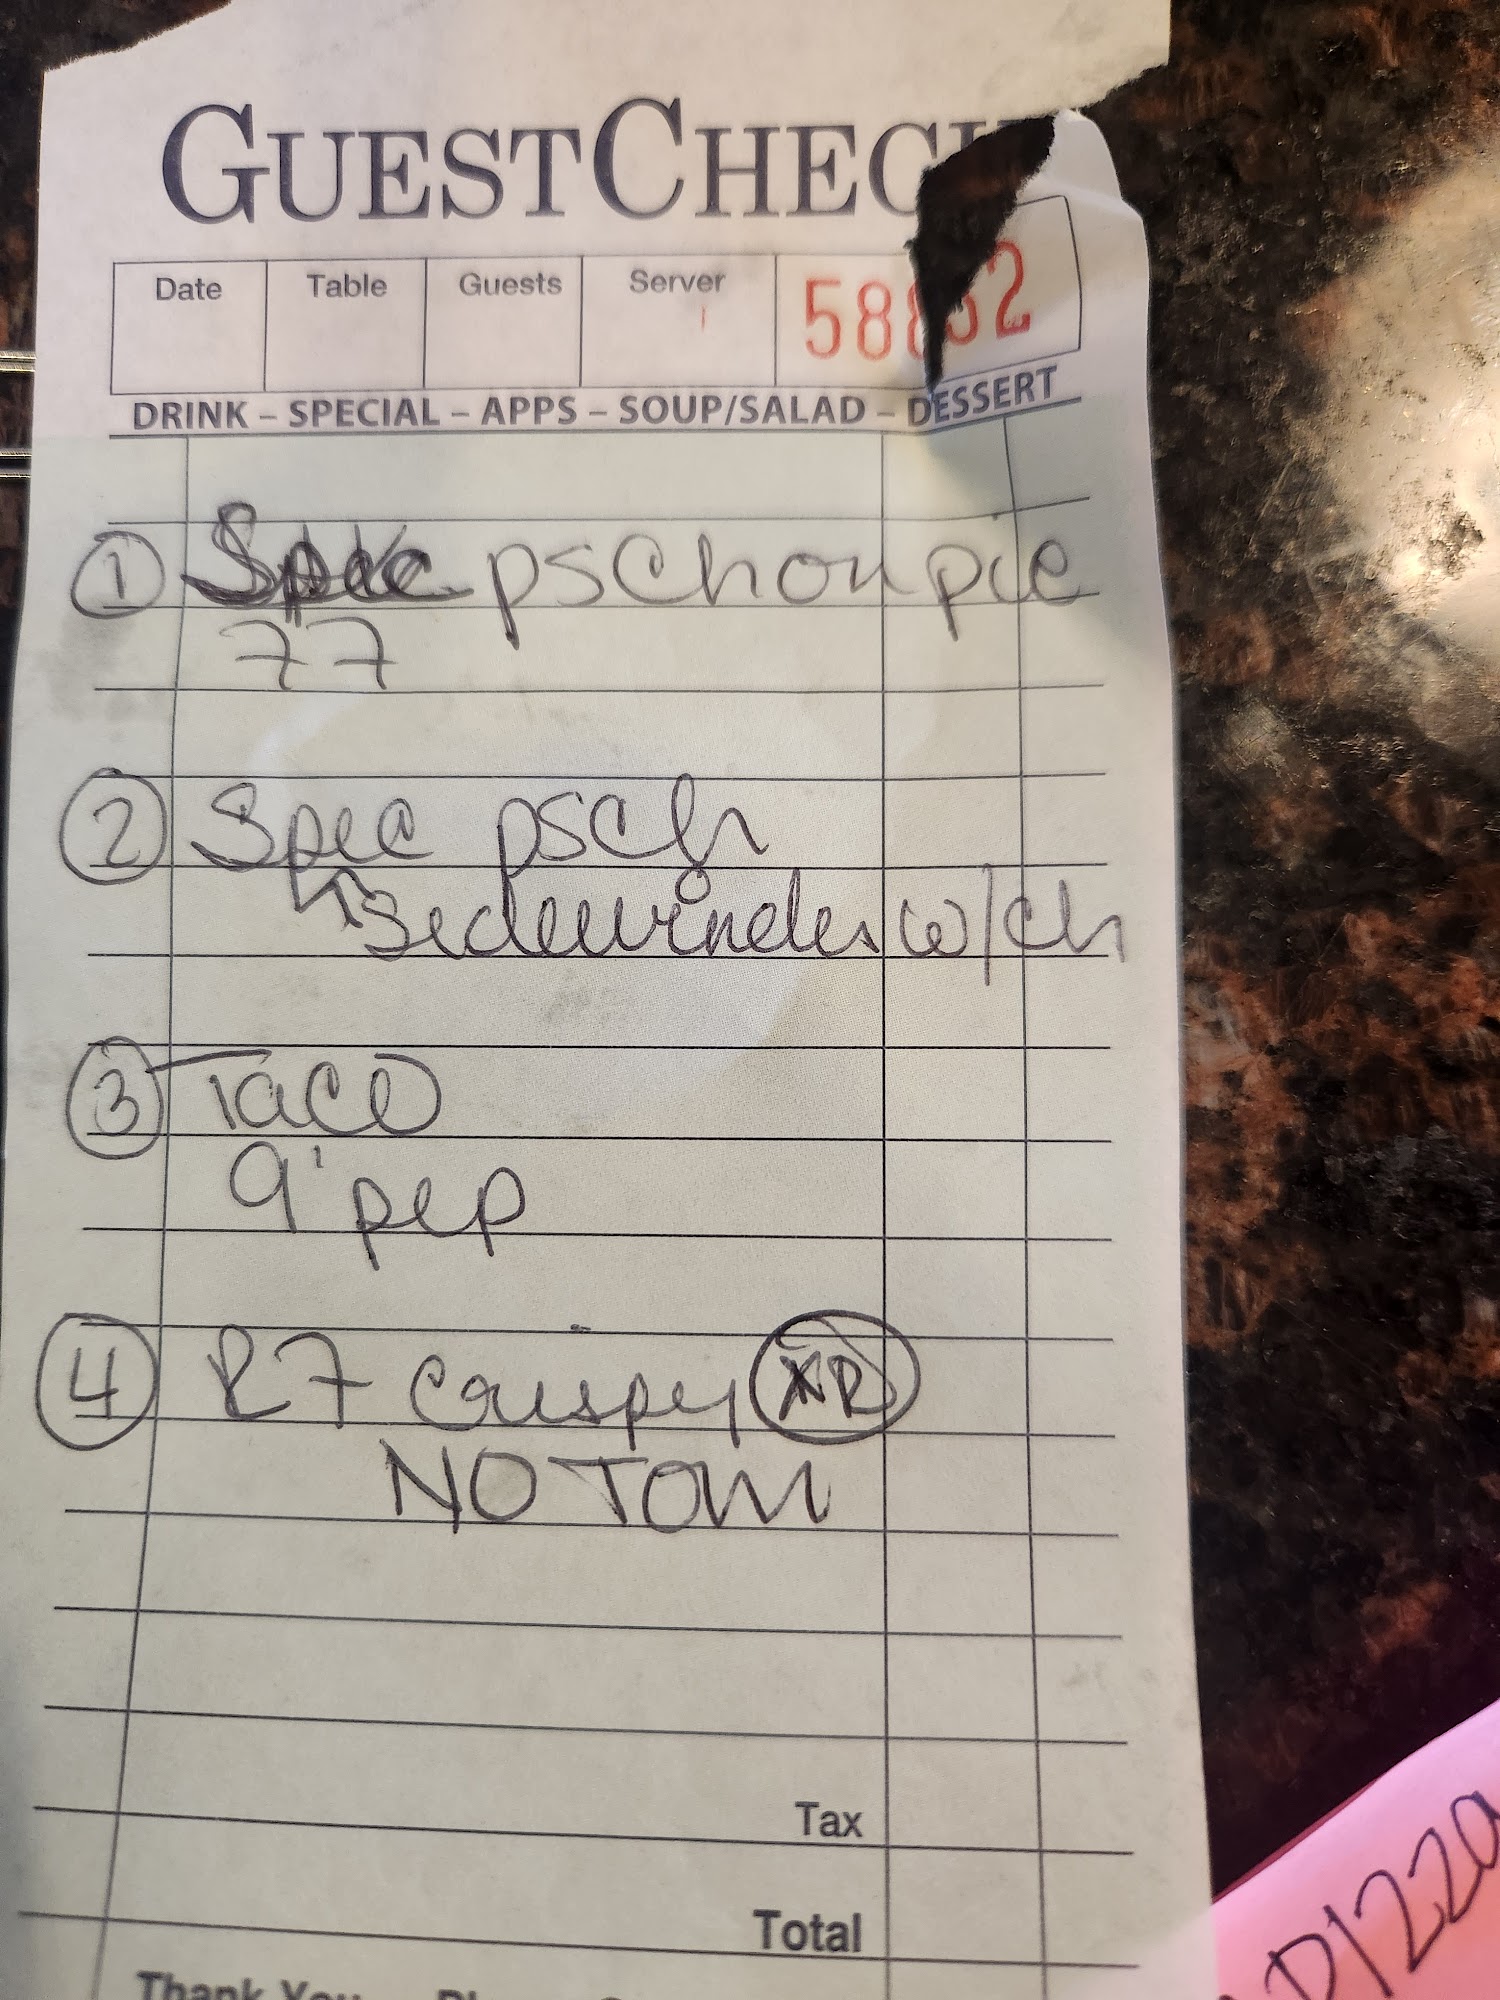 GUESTCHECK
Date Table Guests Server
DRINK – SPECIAL – APPS – SOUP/SALAD – DESSERT
1 pschon pie
77
2 Spec psch
Sidewinder w/ch
3 Taco
9" pep
4 R7 crispy
NO TOM
Tax
Total
Thank You
Pizza